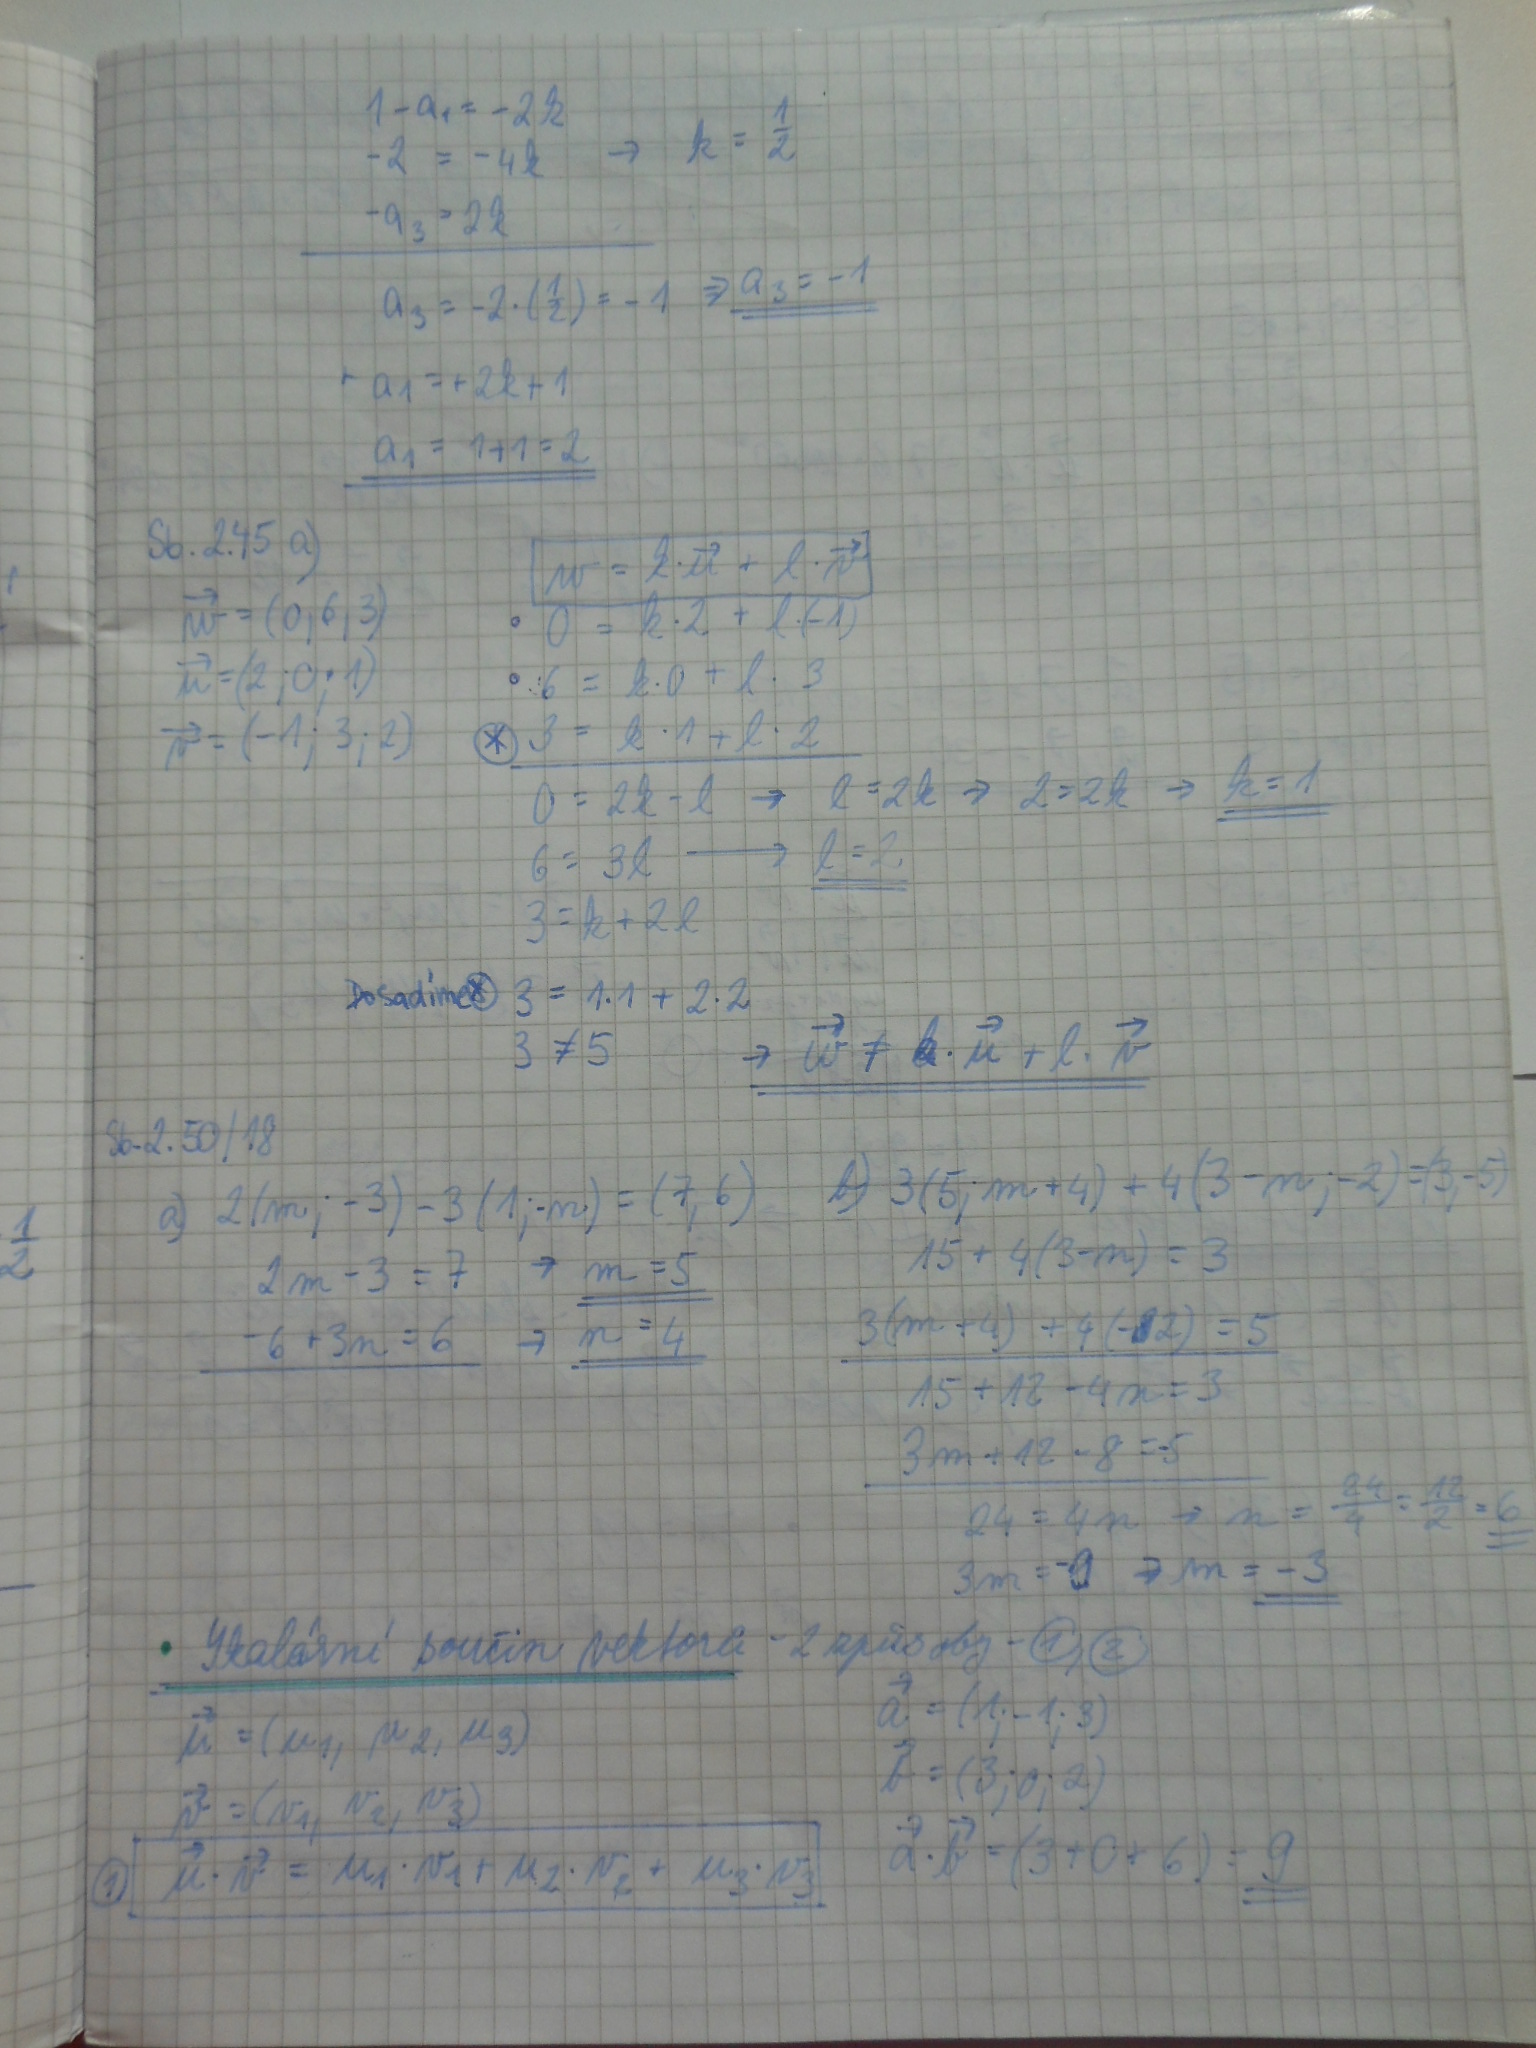 1 - a₁ = -2k
-2 = -4k → k = 1/2
-a₃ = 2k
a₃ = -2·(1/2) = -1 ⇒ a₃ = -1
a₁ = +2k+1
a₁ = 1+1 = 2
Sb. 2.45 a)
w = k·u⃗ + l·v⃗
w⃗ = (0, 6, 3)
• 0 = k·2 + l·(-1)
u⃗ = (2; 0; 1)
• 6 = k·0 + l·3
v⃗ = (-1; 3; 2)
⊛ 3 = k·1 + l·2
0 = 2k - l → l = 2k → 2 = 2k → k = 1
6 = 3l → l = 2
3 = k + 2l
Dosadíme ⊛ 3 = 1·1 + 2·2
3 ≠ 5 → w⃗ ≠ k·u⃗ + l·v⃗
Sb. 2.50/18
a) 2(m; -3) - 3(1; -n) = (7, 6)
2m - 3 = 7 → m = 5
-6 + 3n = 6 → n = 4
b) 3(5; m+4) + 4(3-n; -2) = (3, -5)
15 + 4(3-n) = 3
3(m+4) + 4(-2) = 5
15 + 12 - 4n = 3
3m + 12 - 8 = -5
24 = 4n → n = 24/4 = 12/2 = 6
3m = -9 → m = -3
• Skalární součin vektorů - 2 způsoby - ①, ②
u⃗ = (u₁, u₂, u₃)
v⃗ = (v₁, v₂, v₃)
① u⃗·v⃗ = u₁·v₁ + u₂·v₂ + u₃·v₃
a⃗ = (1; -1; 3)
b⃗ = (3; 0; 2)
a⃗·b⃗ = (3+0+6) = 9
1/2